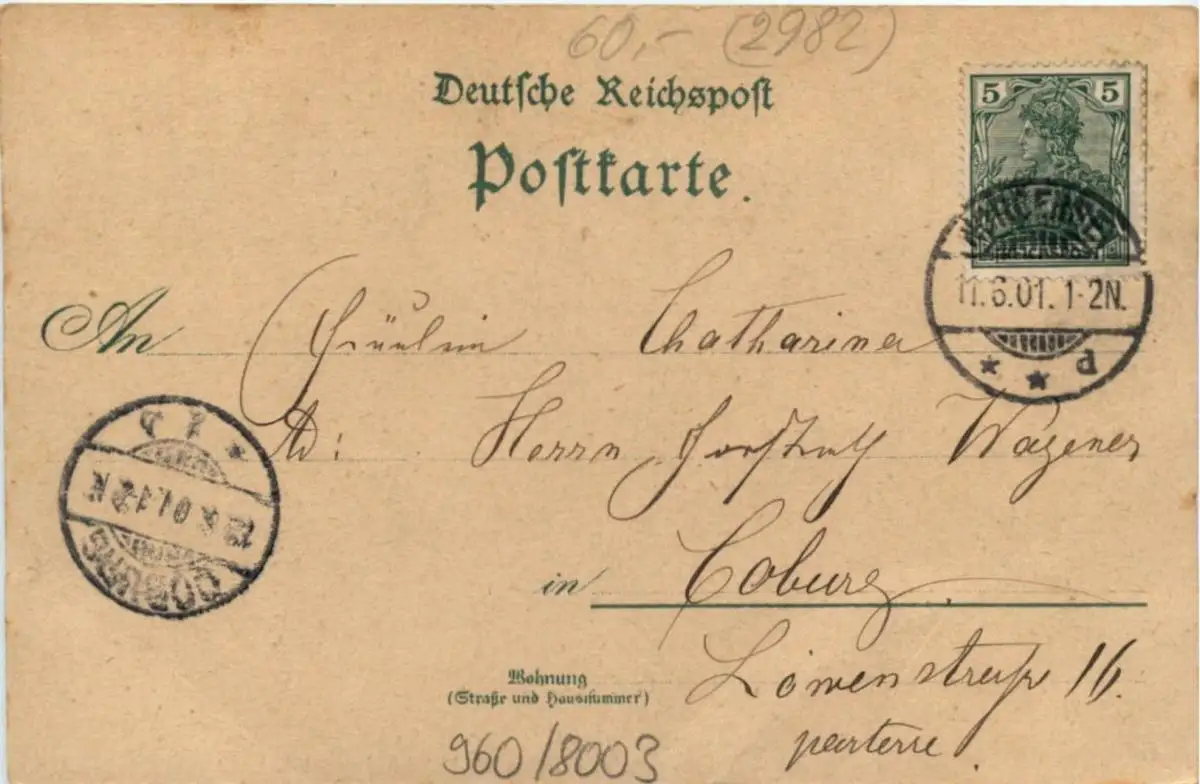 60,- (2982)
Deutsche Reichspost
Postkarte.
5 5
11.6.01. 1-2N.
P
An Fräulein Chatharina
Ad: Herrn Forstrat Wagener
in Coburg
Löwenstraße 16.
parterre.
Wohnung
(Straße und Hausnummer)
960/8003
COBURG